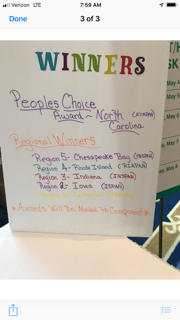 Verizon LTE 7:59 AM
Done 3 of 3
WINNERS
Peoples Choice
Award ~ North
Carolina
Regional Winners
Region 5 - Chesapeake Bay
Region 4 - Rhode Island (RIAPAN)
Region 3 - Indiana (INSPAN)
Region 2 - Iowa (ISPAN)
*Awards Will Be Mailed To Component*
May
May
May